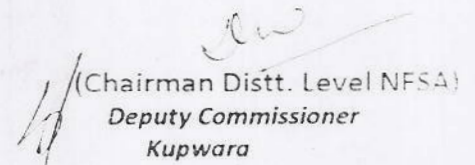 (Chairman Distt. Level NFSA)
Deputy Commissioner
Kupwara